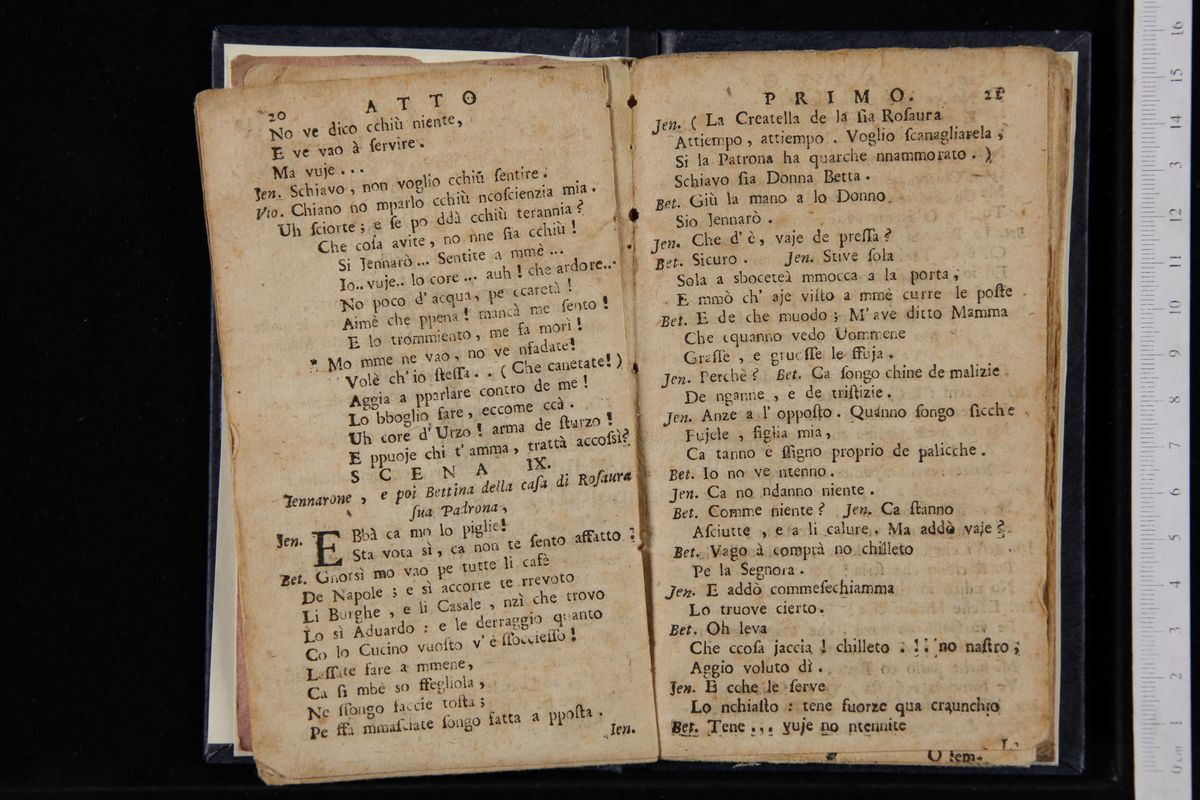 20 ATTO
No ve dico cchiù niente,
E ve vao à ſervire.
Ma vuje...
Jen. Schiavo, non voglio cchiù ſentire.
Vio. Chiano no mparlo cchiù ncoſcienzia mia.
Uh ſciorte; e ſe po ddà cchiù terannia?
Che coſa avite, no nne ſia cchiù!
Si Jennarò... Sentite a mmè...
Io.. vuje.. lo core... auh! che ardore...
No poco d'acqua, pe ccaretà!
Aimè che ppena! mancà me ſento!
E lo trommiento, me fa morì!
* Mo mme ne vao, no ve nfadate!
Volè ch'io ſteſſa.. (Che canetate!)
Aggia a pparlare contro de me!
Lo bboglio fare, eccome ccà.
Uh core d'Urzo! arma de ſturzo!
E ppuoje chi t'amma, trattà accoſsì?
SCENA IX.
Jennarone, e poi Bettina della caſa di Roſaura
ſua Padrona,
Jen. EBbà ca mo lo piglie!
Sta vota sì, ca non te ſento affatto?
Bet. Gnorsì mo vao pe tutte li cafè
De Napole; e si accorre te rrevoto
Li Burghe, e li Caſale, nzì che trovo
Lo sì Aduardo: e le derraggio quanto
Co lo Cucino vuoſto v'è ſſoccieſſo!
Laſſate fare a mmene,
Ca ſi mbè so ffegliola,
Ne ſſongo faccie toſta;
Pe ffà mmaſciate ſongo fatta a ppoſta.
Jen.
PRIMO. 21
Jen. (La Creatella de la ſia Roſaura
Attiempo, attiempo. Voglio ſcanagliarela,
Si la Patrona ha quarche nnammorato.)
Schiavo ſia Donna Betta.
Bet. Giù la mano a lo Donno
Sio Jennarò.
Jen. Che d'è, vaje de preſſa?
Bet. Sicuro. Jen. Stive ſola
Sola a sboceteà mmocca a la porta,
E mmò ch'aje viſto a mmè curre le poſte
Bet. E de che muodo; M'ave ditto Mamma
Che cquanno vedo Uommene
Graſſe, e grueſſe le ffuja.
Jen. Perchè? Bet. Ca ſongo chine de malizie
De nganne, e de triſtizie.
Jen. Anze a l'oppoſto. Quanno ſongo ſicche,
Fujele, figlia mia,
Ca tanno e ſſigno proprio de palicche.
Bet. Io no ve ntenno.
Jen. Ca no ndanno niente.
Bet. Comme niente? Jen. Ca ſtanno
Aſciutte, e a li calure. Ma addò vaje?
Bet. Vago à comprà no chilleto
Pe la Segnora.
Jen. E addò commeſechiamma
Lo truove cierto.
Bet. Oh leva
Che ccoſa jaccia! chilleto.!.. no naſtro;
Aggio voluto dì.
Jen. E cche le ſerve
Lo nchiaſto: tene fuorze qua craunchio
Bet. Tene... vuje no ntennite